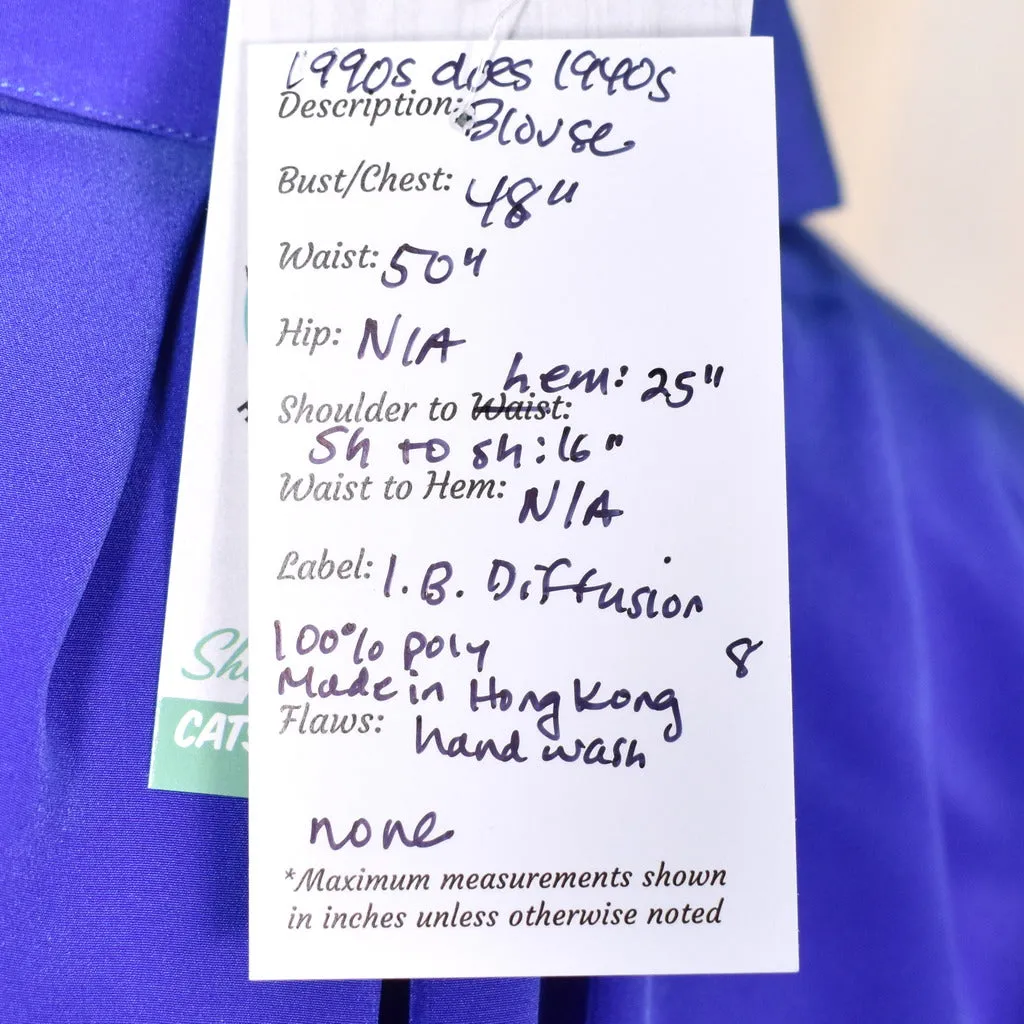 1990s does 1940s
Description: Blouse
Bust/Chest: 48"
Waist: 50"
Hip: N/A
hem: 25"
Shoulder to Waist:
Sh to sh: 16"
Waist to Hem: N/A
Label: I.B. Diffusion
100% poly 8
Made in Hong Kong
Flaws: hand wash
none
*Maximum measurements shown
in inches unless otherwise noted